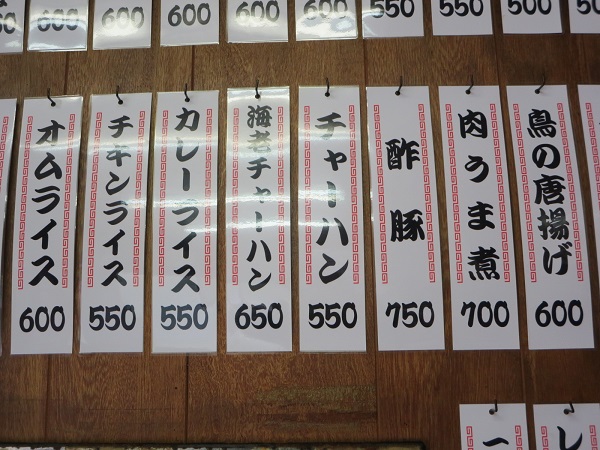 600
600
600
600
550
550
500
鳥の唐揚げ
600
肉うま煮
700
酢豚
750
チャーハン
550
海老チャーハン
650
カレーライス
550
チキンライス
550
オムライス
600